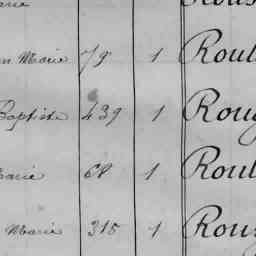 arie
n Marie 79 1 Roul
Baptiste 439 1 Roug
arie 68 1 Roul
Marie 315 1 Rou